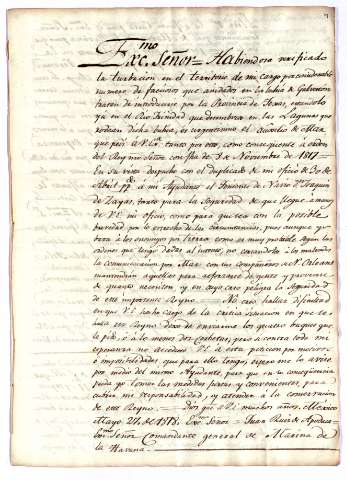 Exc.mo Señor = Habiendose verificado
la turbacion en el territorio de mi cargo por considerable
numero de facciosos que anidados en la bahia de Galveston
tratan de introducirse por la Provincia de Texas, estandolo
ya en el Rio Trinidad que desemboca en las Lagunas que
rodean dicha bahia, es urgentisimo el Auxilio de Mar
que pedi á V.E. tantas veces, como consequente á orden
del Rey mi Señor con fha de 3 de Noviembre de 1817 =
En su vista despacho con el duplicado de mi oficio de 30 de
Abril pp.do á mi Ayudante el Teniente de Navio D. Joaquin
de Zayas, tanto para la seguridad de que llegue á manos
de V.E. mi oficio, como para que sea con la posible
brevedad por lo estrecho de las circunstancias, pues aunque
á los enemigos por tierra como es muy probable segun las
ordenes que tengo dadas al intento, no cerrandoles la
la comunicacion por Mar con sus compañeros de N. Orleans
mantendrán aquellos para reforzarse de gente y proveerse
de quanto necesiten y en cuyo caso peligra la Seguridad
de este importante Reyno. = No creo hallar dificultad
en que V.E. hecho cargo de la critica situacion en que se
halla este Reyno dexe de enviarme los quatro buques que
le pido, ó á lo menos dos Corbetas; pero si contra toda mi
esperanza no accediere V.E. á esta peticion por motivos
ó imposibilidades que para ello tenga, espero me lo avise
por medio del mismo Ayudante, para que en su consequencia
pueda yo tomar las medidas justas, y convenientes, para
cubrir mi responsabilidad, y atender á la conservacion
de este Reyno. = Dios gue á V.E. muchos años. México
Mayo 27 de 1818. Exmo Señor = Juan Ruiz de Apodaca =
Exmo Señor Comandante general de Marina de
la Havana.